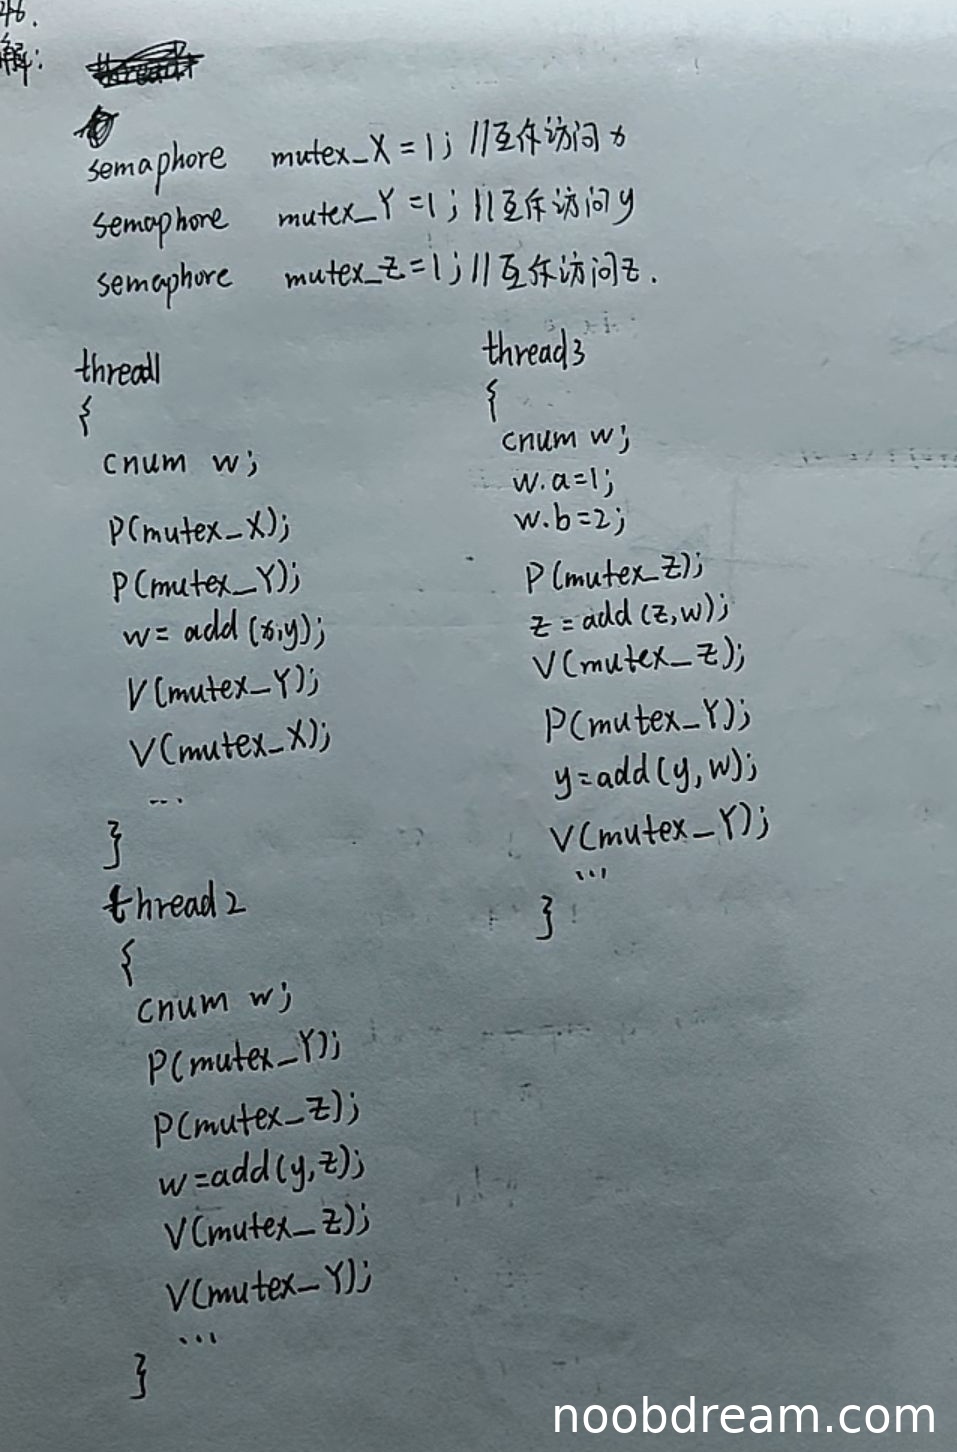 46.
解:
semaphore mutex_X=1; //互斥访问x
semaphore mutex_Y=1; //互斥访问y
semaphore mutex_Z=1; //互斥访问z.
thread1
{
cnum w;
P(mutex_X);
P(mutex_Y);
w= add(x,y);
V(mutex_Y);
V(mutex_X);
...
}
thread2
{
cnum w;
P(mutex_Y);
P(mutex_Z);
w=add(y,z);
V(mutex_Z);
V(mutex_Y);
...
}
thread3
{
cnum w;
w.a=1;
w.b=2;
P(mutex_Z);
z=add(z,w);
V(mutex_Z);
P(mutex_Y);
y=add(y,w);
V(mutex_Y);
...
}
noobdream.com